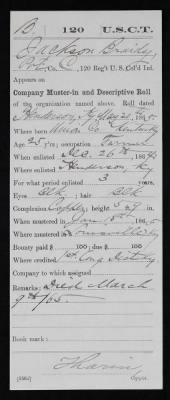 B | 120 | U.S.C.T.
Jackson Braidy
Pvt, Co. C, 120 Reg't U. S. Col'd Inf.
Appears on
Company Muster-in and Descriptive Roll
of the organization named above. Roll dated
Henderson, Ky May 21, 1865
Where born Union Co. Kentucky
Age 25 y'rs; occupation Farmer
When enlisted Dec. 26th, 1864
Where enlisted Henderson, Ky
For what period enlisted 3 years.
Eyes Blk; hair Blk
Complexion Copper; height 5 ft. 9 in.
When mustered in Jan 18th, 1865
Where mustered in Louisville Ky
Bounty paid $ 100; due $ 100
Where credited 1st Cong District
Company to which assigned
Remarks: Died March
9th/65.
Book mark:
(356d) Copyist.